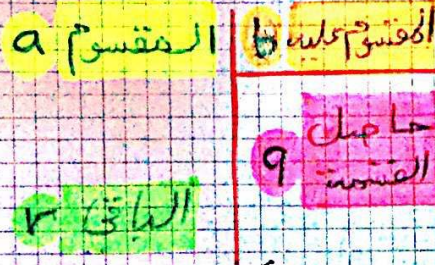 المقسوم a
المقسوم عليه b
حاصل
القسمة q
الباقي r